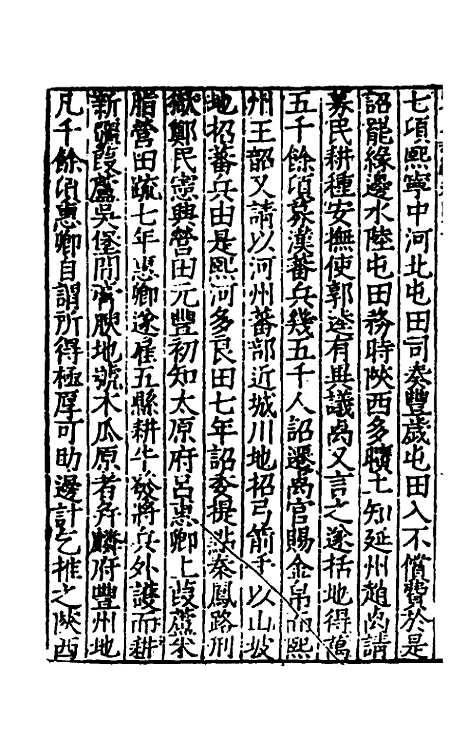 七頃熙寧中河北屯田司奏豐歲屯田入不償費於是
詔罷緣邊水陸屯田務時陝西多曠土知延州趙卨請
募民耕種安撫使郭逵有異議卨又言之遂括地得萬
五千餘頃募漢蕃兵幾五千人詔遷卨官賜金帛而熙
州王韶又請以河州蕃部近城川地招弓箭手以山坡
地招蕃兵由是熙河多良田七年詔委提㸃秦鳳路刑
獄鄭民憲興營田元豐初知太原府呂惠卿上葭蘆米
脂營田疏七年惠卿遂雇五縣耕牛發將兵外護而耕
新疆葭蘆吳堡間膏腴地號木瓜原者弁麟府豐州地
凡千餘頃惠卿自謂所得極厚可助邊計乞推之陝西